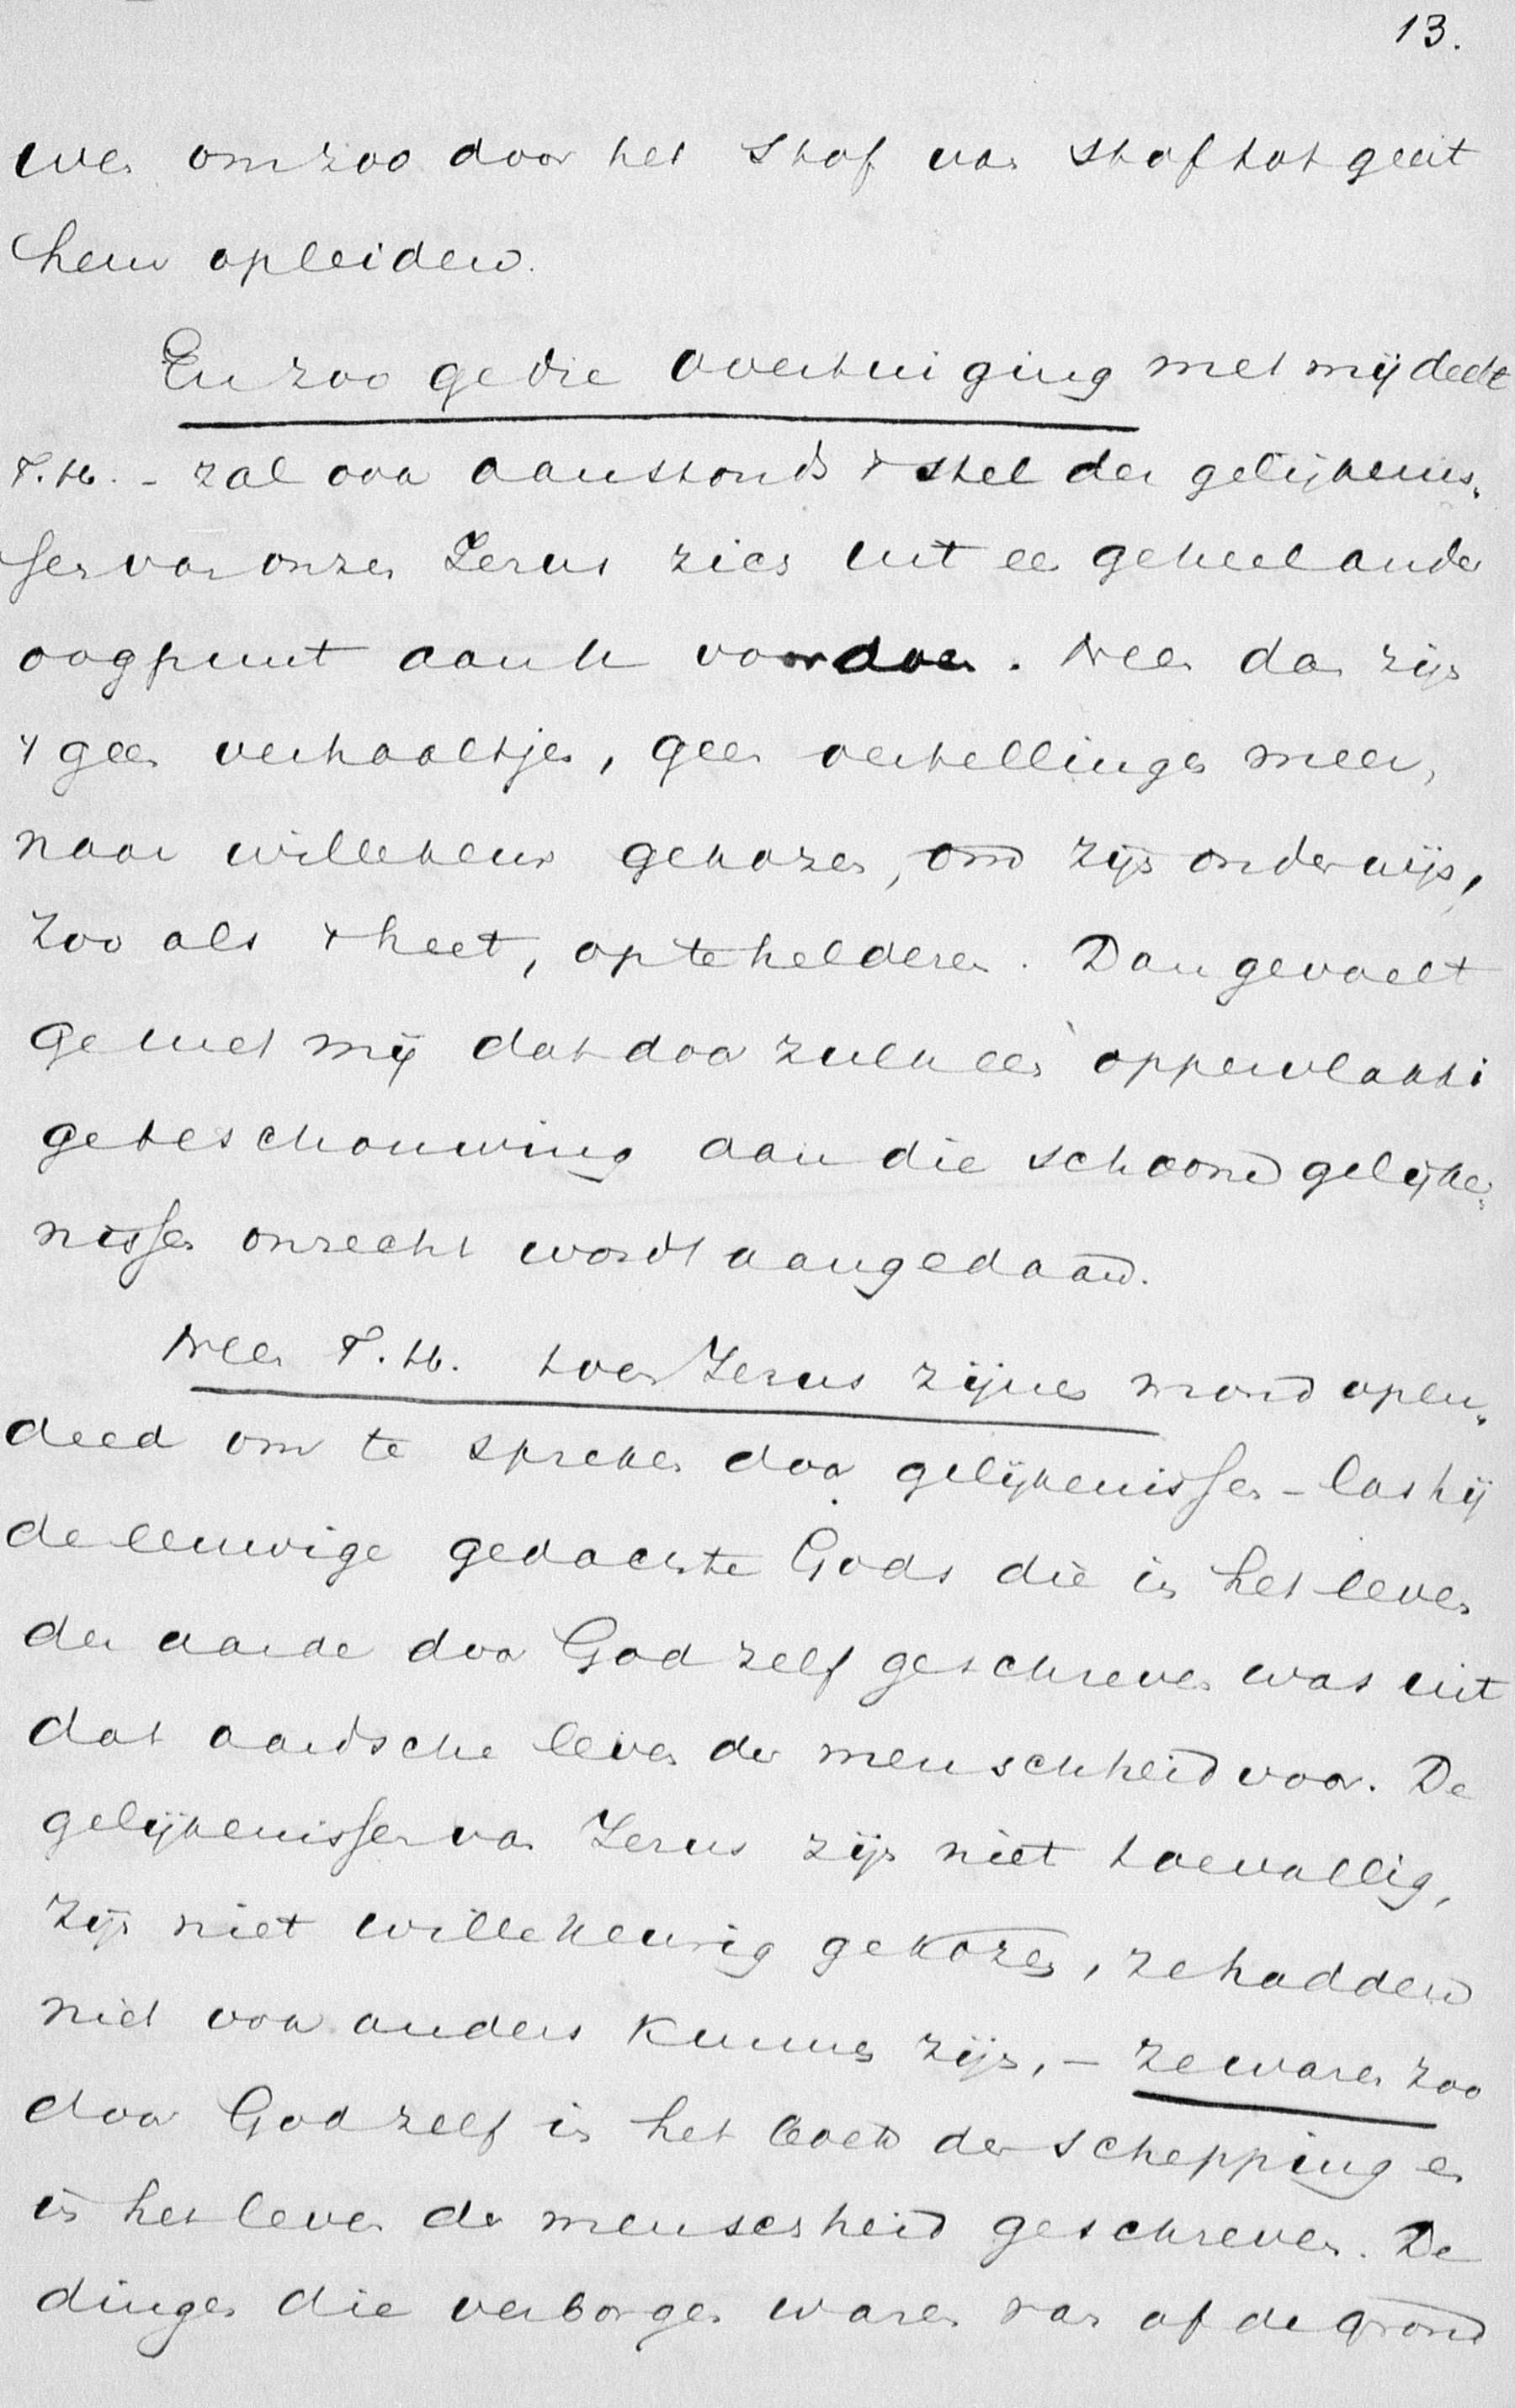 13.
ven om zoo door het stof van stof tot geest
hem opleiden.
En zoo ge die overtuiging met mij deelt
T.H. - zal ook aanstonds 't stel der gelijkenis-
sen van onzen Jezus zich uit een geheel ander
oogpunt aan u voordoen. Neen dan zijn
't geen verhaaltjes, geen vertellingen meer,
naar willekeur gekozen, om zijn onderwijs,
zoo als 't heet, op te helderen. Dan gevoelt
ge met mij dat door zulk een oppervlakki
ge beschouwing aan die schoone gelijke-
nissen onrecht wordt aangedaan.
Neen T.H. toen Jezus zijnen mond open-
deed om te spreken door gelijkenissen - las hij
de eeuwige gedachte Gods die in het leven
der aarde door God zelf geschreven was uit
dat aardsche leven der menschheid voor. De
gelijkenissen van Jezus zijn niet toevallig,
zijn niet willekeurig gekozen, ze hadden
niet ook anders kunnen zijn, - ze waren zoo
door God zelf in het boek der schepping en
in het leven der menschheid geschreven. De
dingen die verborgen waren van af de grond